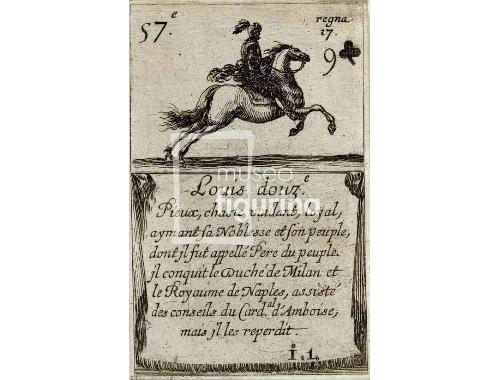 57.e
regna
17.
9
museo
figurina
Louis douz.e
Pieux, chaste vaillant, loyal,
aymant sa Noblesse et son peuple,
dont jl fut appellé Pere du peuple.
jl conquit le Duché de Milan et
le Royaume de Naples, assisté
des conseils du Card.al d'Amboise,
mais jl les reperdit.
i. 1.